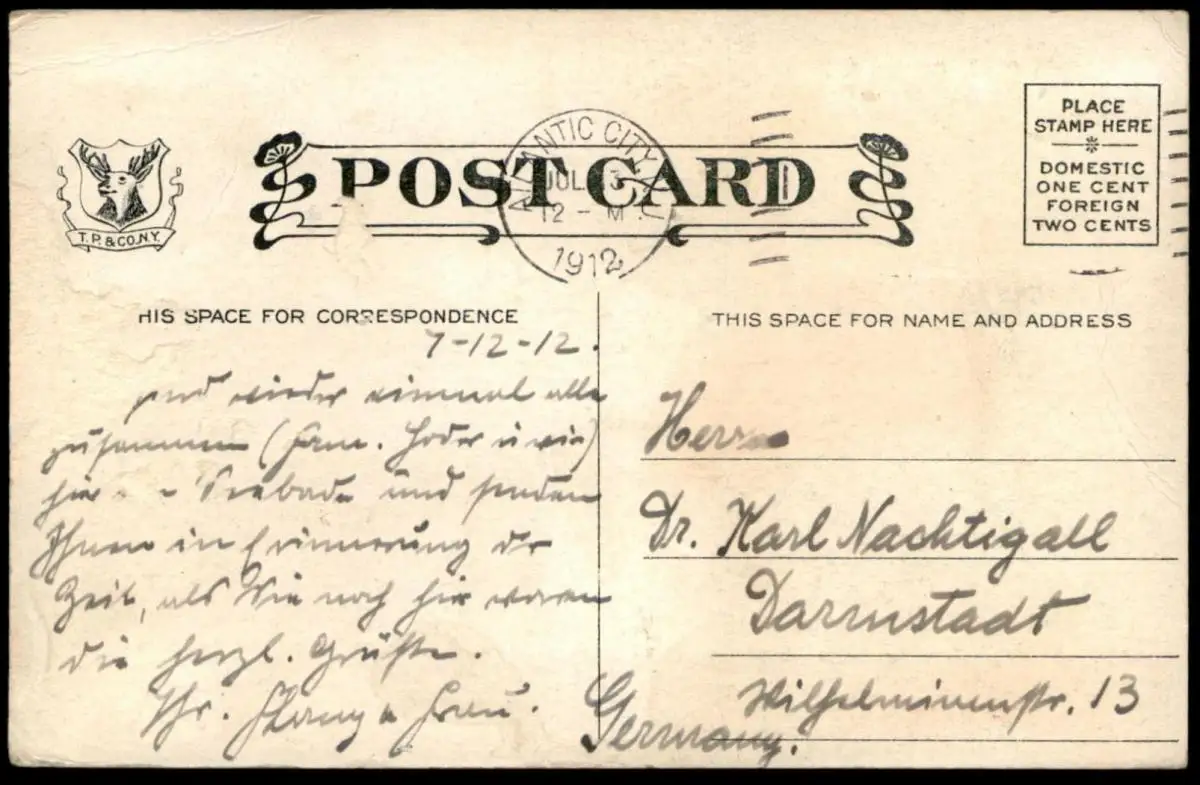 T. P. & CO. N.Y.
POST CARD
ATLANTIC CITY, N.J.
JUL 13
12 - M
1912
PLACE
STAMP HERE
DOMESTIC
ONE CENT
FOREIGN
TWO CENTS
HIS SPACE FOR CORRESPONDENCE
THIS SPACE FOR NAME AND ADDRESS
7-12-12.
sind wieder einmal alle
zusammen (Fam. Hoder u wir)
hier Seebade und senden
Ihnen in Erinnerung der
Zeit, als Sie noch hier waren
die herzl. Grüße.
Ihr. u Frau.
Herrn
Dr. Karl Nachtigall
Darmstadt
Wilhelminenstr. 13
Germany.